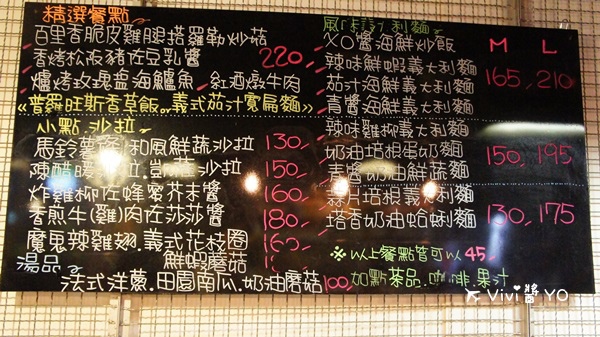 精選餐點
百里香脆皮雞腿搭羅勒炒菇
香烤松阪豬佐豆乳醬 220
爐烤玫瑰盐海鱸魚 紅酒燉牛肉
《普羅旺斯香草飯。義式茄汁寬扁麵》
小點 沙拉
馬鈴薯 和風鮮蔬沙拉 130
陳醋暖 拉 沙拉 150
炸雞柳佐蜂蜜芥末醬 160
香煎牛(雞)肉佐莎莎醬 180
魔鬼辣雞翅.義式花枝圈 160
湯品 鮮蝦蘑菇
法式洋蔥.田園南瓜.奶油蘑菇 100
利麵
XO醬海鮮炒飯 M L
辣味鮮蝦義大利麵 165, 210
茄汁海鮮義大利麵
青醬海鮮義大利麵
辣味雞柳義大利麵
奶油培根蛋奶麵 150, 195
青醬奶油鮮蔬麵
蒜片培根義大利麵
塔香奶油蛤蜊麵 130, 175
※以上餐點皆可以45
加點茶品.咖啡.果汁
Vivi醬YO